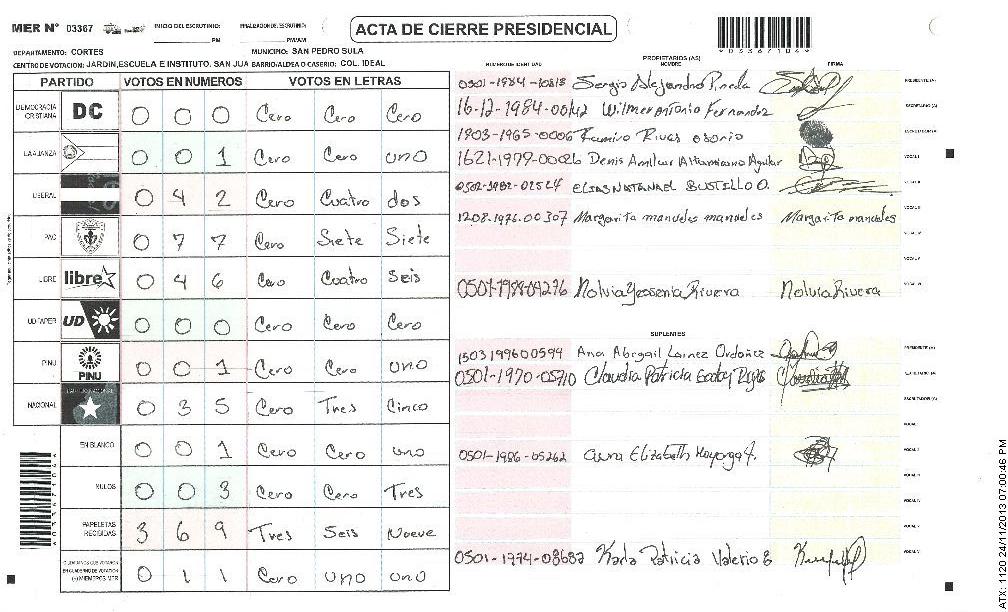 MER N° 03367
INICIO DEL ESCRUTINIO: PM
FINALIZACION DEL ESCRUTINIO: PM/AM
ACTA DE CIERRE PRESIDENCIAL
DEPARTAMENTO: CORTES
MUNICIPIO: SAN PEDRO SULA
CENTRO DE VOTACION: JARDIN,ESCUELA E INSTITUTO. SAN JUA BARRIO/ALDEA O CASERIO: COL. IDEAL
PARTIDO VOTOS EN NUMEROS VOTOS EN LETRAS
DEMOCRACIA CRISTIANA DC 0 0 0 Cero Cero Cero
LA ALIANZA 0 0 1 Cero Cero uno
LIBERAL 0 4 2 Cero Cuatro dos
PAC 0 7 7 Cero Siete Siete
LIBRE libre 0 4 6 Cero Cuatro Seis
UD FAPER UD 0 0 0 Cero Cero Cero
PINU PINU 0 0 1 Cero Cero uno
NACIONAL 0 3 5 Cero Tres Cinco
EN BLANCO 0 0 1 Cero Cero uno
NULOS 0 0 3 Cero Cero Tres
PAPELETAS RECIBIDAS 3 6 9 Tres Seis Nueve
CIUDADANOS QUE VOTARON EN CUADERNO DE VOTACION (+) MIEMBROS MER 0 1 1 Cero uno uno
PROPIETARIOS (AS)
NUMERO DE IDENTIDAD NOMBRE FIRMA
0501-1984-10813 Sergio Alejandro Pineda PRESIDENTE (A)
16-12-1984-00142 Wilmer Antonio Fernandez SECRETARIO (A)
1803-1965-0006 Ramiro Rivas osorio ESCRUTADOR (A)
1621-1979-00026 Denis Amilcar Altamirano Aguilar VOCAL I
0502-1982-01524 ELIAS NATANAEL BUSTILLO O. VOCAL II
1208-1976-00307 Margarita manueles manueles Margarita manueles VOCAL III
VOCAL IV
0501-1988-04276 Nolvia Yessenia Rivera Nolvia Rivera
SUPLENTES
1503199600594 Ana Abigail Lainez Ordoñez PRESIDENTE (A)
0501-1970-05710 Claudia Patricia SECRETARIO (A)
ESCRUTADOR (A)
VOCAL I
0501-1986-05262 Elizabeth Mayorga VOCAL II
VOCAL III
VOCAL IV
0501-1974-08682 Karla Patricia Valerio VOCAL V
ATX: 1120 24/11/2013 07:00:46 PM